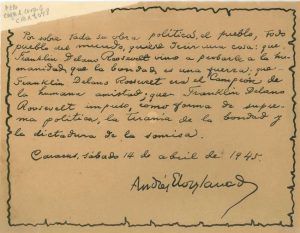 Por sobre toda su obra política, el pueblo, todo
pueblo del mundo, quiere decir una cosa: que
Franklin Delano Roosevelt vino a probarle a la hu-
manidad, que la bondad, es una fuerza; que
Franklin Delano Roosevelt era el Campeón de
la humana amistad; que Franklin Delano
Roosevelt impuso, como forma de supre-
ma política, la tiranía de la bondad y
la dictadura de la sonrisa.
Caracas, sábado 14 de abril de 1945.
Andrés Eloy Blanco